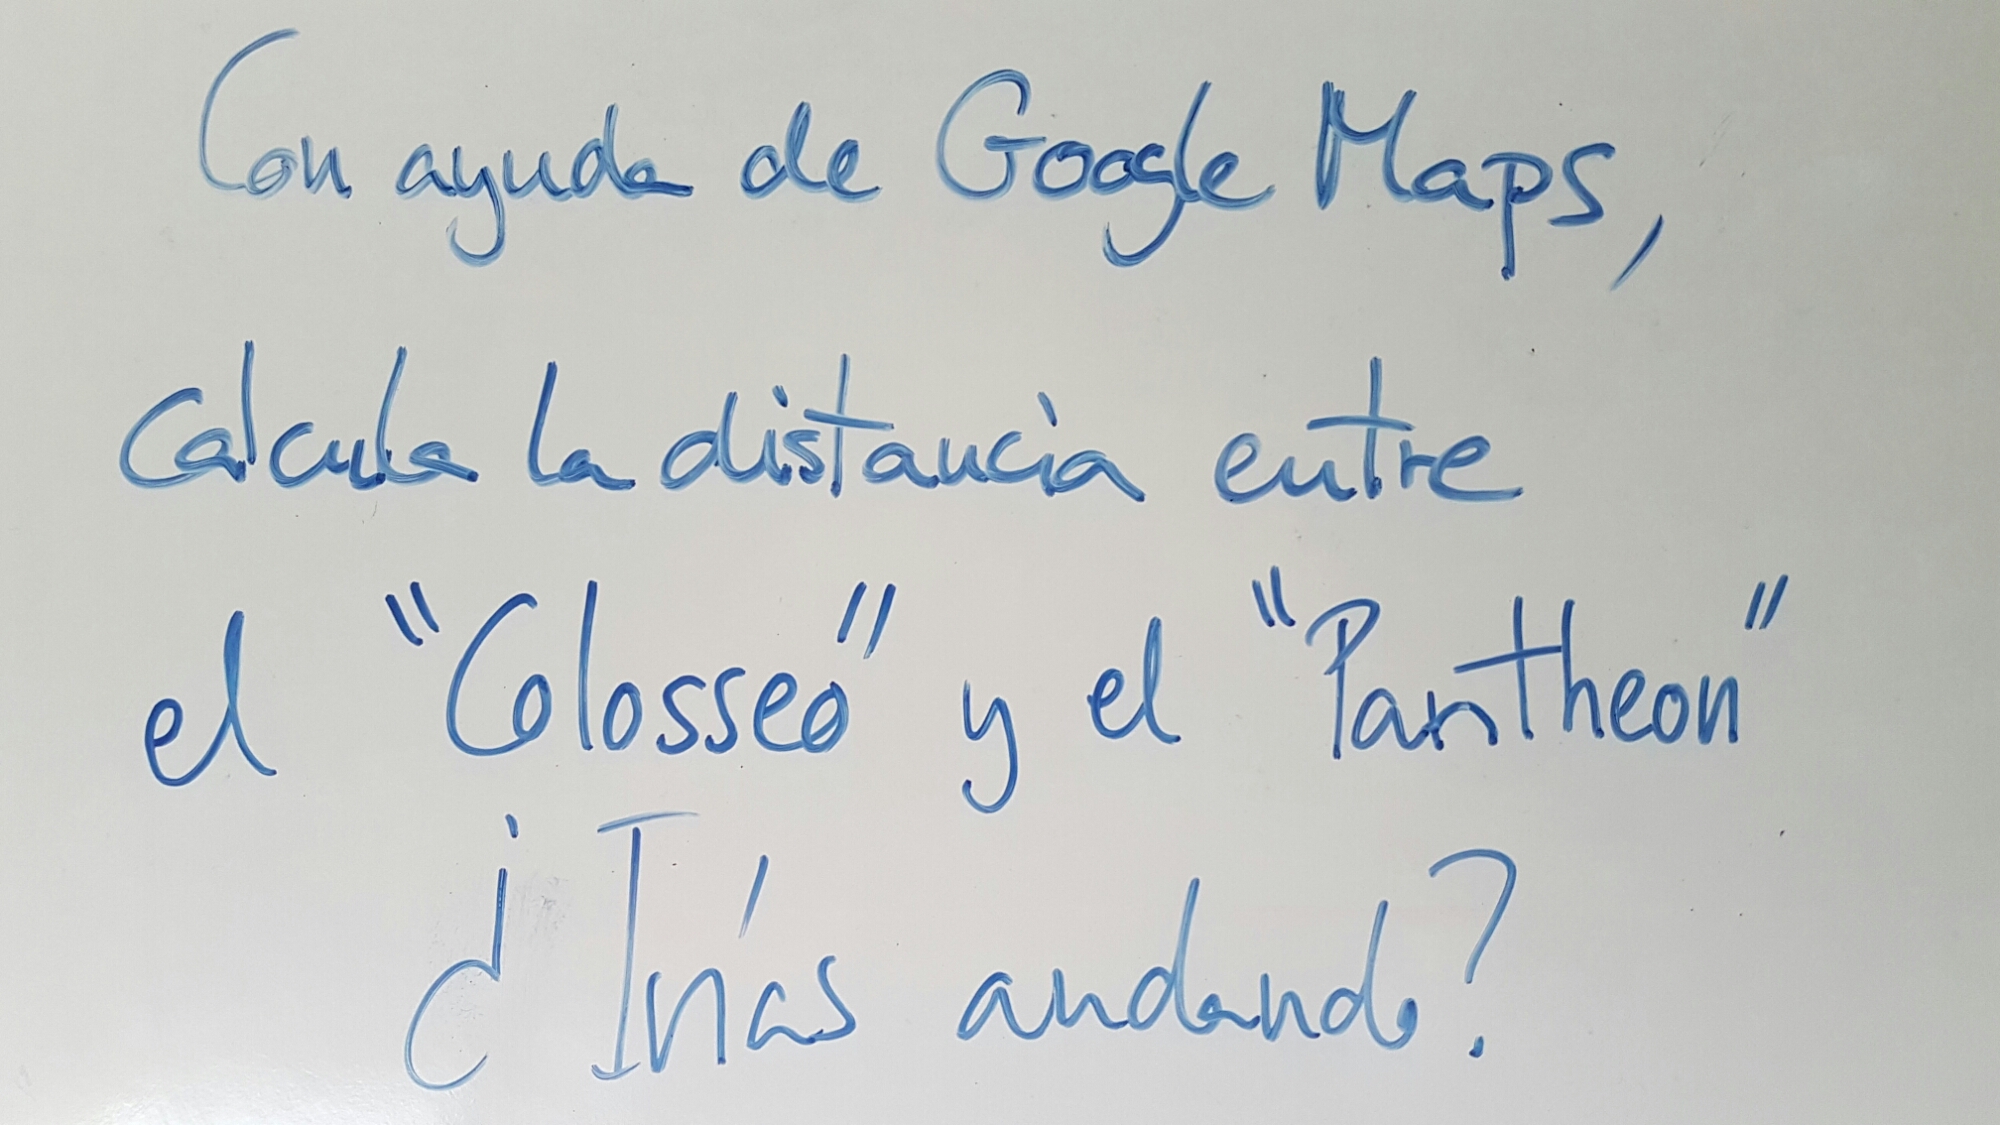 Con ayuda de Google Maps,
calcula la distancia entre
el "Colosseo" y el "Pantheon"
¿Irías andando?